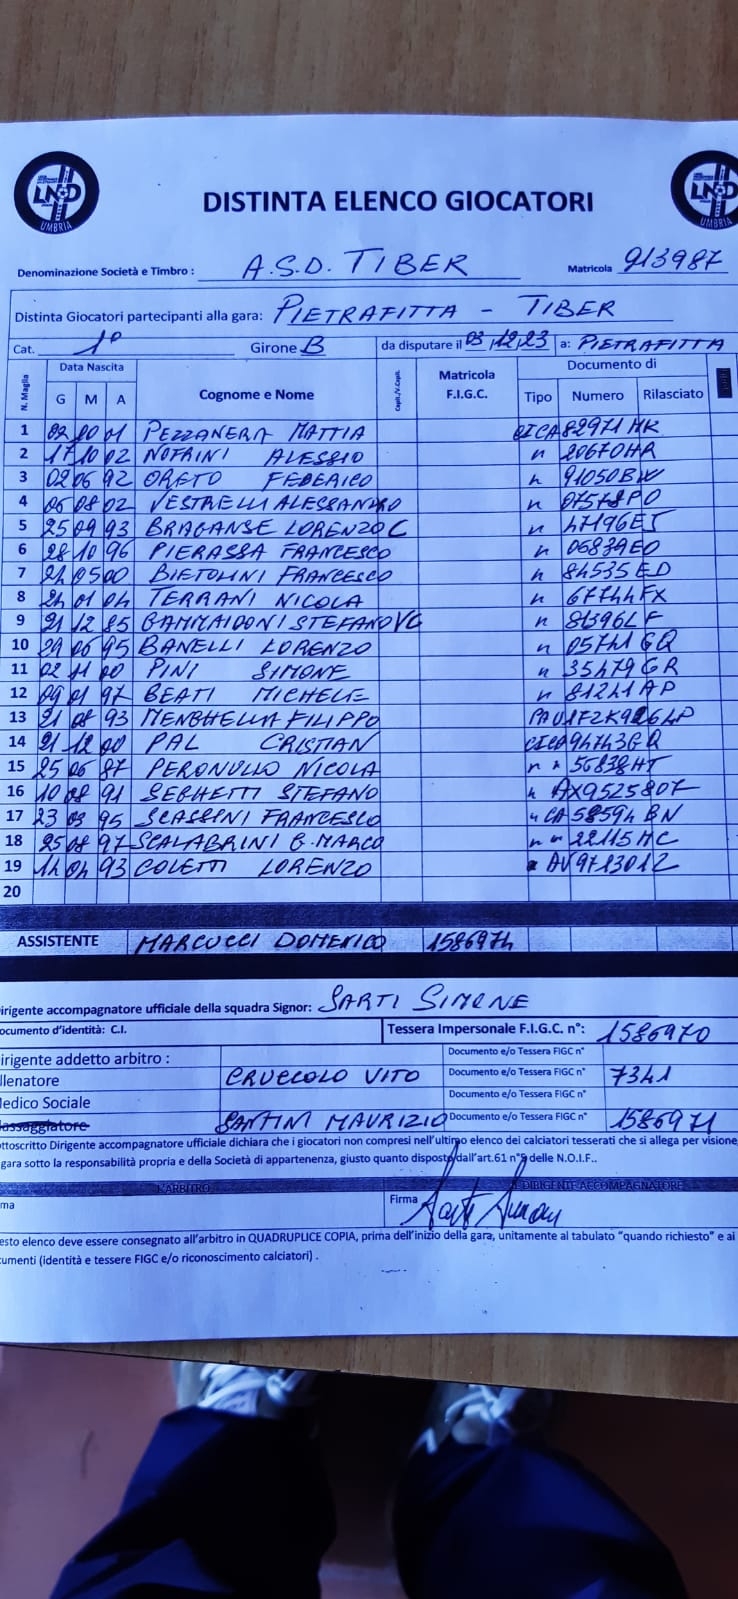 LND UMBRIA
DISTINTA ELENCO GIOCATORI
LND UMBRIA
Denominazione Società e Timbro : A.S.D. TIBER Matricola 913987
Distinta Giocatori partecipanti alla gara: PIETRAFITTA - TIBER
Cat. 1° Girone B da disputare il 03/12/23 a: PIETRAFITTA
N. Maglia Data Nascita G M A Cognome e Nome Capit./V.Capit. Matricola F.I.G.C. Documento di Tipo Numero Rilasciato
1 01 PEZZANERA MATTIA CA82971MK
2 17 10 02 NOFRINI ALESSIO " 20670HR
3 02 06 92 ORETO FEDERICO " 91050BW
4 06 08 02 VESTRELLI ALESSANDRO " 07578PO
5 25 09 93 BRAGANSE LORENZO C " 47196EJ
6 28 10 96 PIERASSA FRANCESCO " 06839EO
7 05 00 BIETOLINI FRANCESCO " 84535ED
8 24 01 04 TERRANI NICOLA " 67744FX
9 21 12 85 GAMMAIDONI STEFANO VC " 81396LF
10 29 06 95 BANELLI LORENZO " 05741GQ
11 02 11 00 PINI SIMONE " 35479GR
12 09 01 97 BEATI MICHELE " 81241AP
13 21 08 93 MENGHELLA FILIPPO
14 21 12 00 PAL CRISTIAN 94743GQ
15 25 06 87 PERONULLO NICOLA " 56838HT
16 10 08 91 SEGHETTI STEFANO " AX9525807
17 23 03 95 SCASSINI FRANCESCO " CA58594BN
18 25 08 97 SCALABRINI G.MARCO " 22115MC
19 14 04 93 COLETTI LORENZO AV9713012
20
ASSISTENTE MARCUCCI DOMENICO 1586974
irigente accompagnatore ufficiale della squadra Signor: SARTI SIMONE
ocumento d'identità: C.I. Tessera Impersonale F.I.G.C. n°: 1586970
irigente addetto arbitro : Documento e/o Tessera FIGC n°
llenatore CRUCCOLO VITO Documento e/o Tessera FIGC n° 7341
edico Sociale Documento e/o Tessera FIGC n°
assaggiatore SANTINI MAURIZIO Documento e/o Tessera FIGC n° 1586971
ottoscritto Dirigente accompagnatore ufficiale dichiara che i giocatori non compresi nell'ultimo elenco dei calciatori tesserati che si allega per visione,
gara sotto la responsabilità propria e della Società di appartenenza, giusto quanto disposto dall'art.61 n°5 delle N.O.I.F..
L'ARBITRO IL DIRIGENTE ACCOMPAGNATORE
ma Firma Sarti Simone
esto elenco deve essere consegnato all'arbitro in QUADRUPLICE COPIA, prima dell'inizio della gara, unitamente al tabulato "quando richiesto" e ai
umenti (identità e tessere FIGC e/o riconoscimento calciatori) .